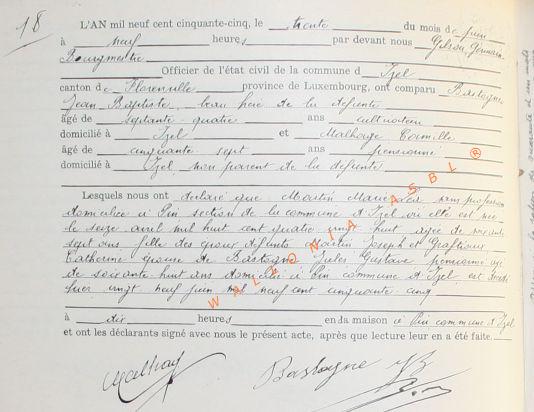 18
L'AN mil neuf cent cinquante-cinq, le trente du mois de juin
à neuf heures par devant nous Gilson, Germain
Bourgmestre
Officier de l'état civil de la commune d Izel
canton de Florenville province de Luxembourg, ont comparu Bastogne
Jean Baptiste, beau frère de la défunte
âgé de septante quatre ans cultivateur
domicilié à Izel et Malhage Camille
âgé de cinquante sept ans pensionné
domicilié à Izel, non parent de la défunte
Lesquels nous ont déclaré que Martin Marie sans profession
domiciliée à Pin section de la commune d'Izel où elle est née
le seize avril mil huit cent quatre vingt huit âgée de soixante
sept ans fille des époux défunts Martin Joseph et
Catherine épouse de Bastogne Jules Gustave pensionné âgé
de soixante huit ans domicilié à Pin commune d'Izel est décédée
hier vingt neuf juin mil neuf cent cinquante cinq
à dix heures en da maison à Pin commune d'Izel
et ont les déclarants signé avec nous le présent acte, après que lecture leur en a été faite.
Bastogne JB
WALLONIA ASBL ®